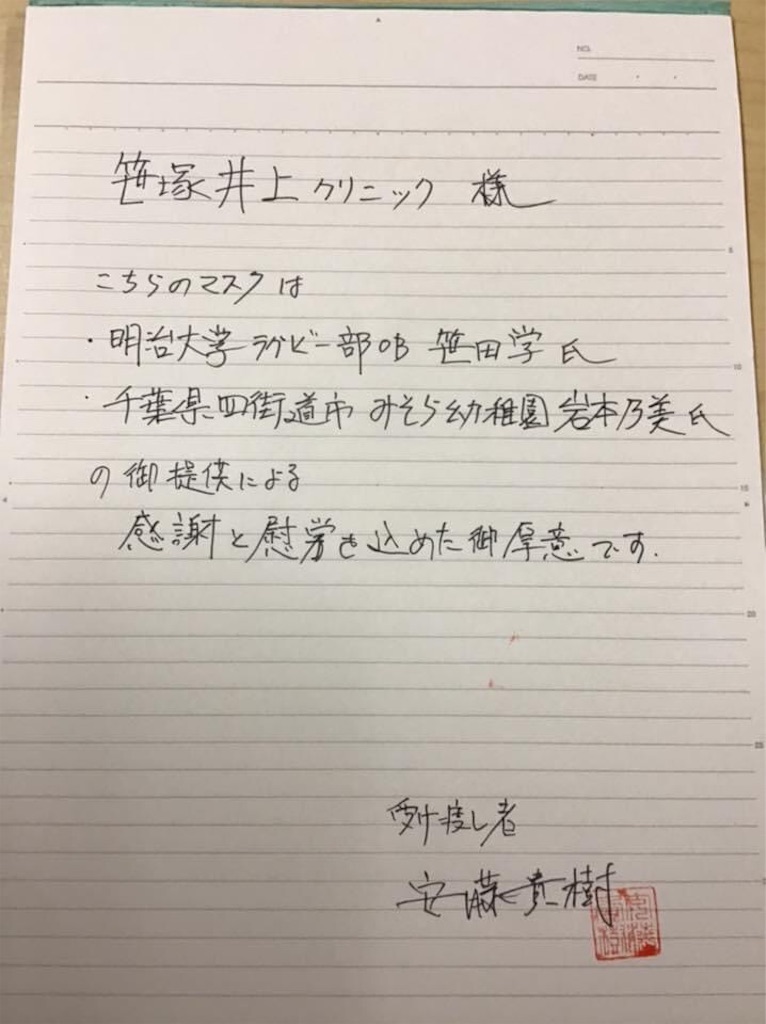 NO.
DATE
笹塚井上クリニック 様
こちらのマスクは
・明治大学ラグビー部OB 笹田学氏
・千葉県四街道市 みそら幼稚園岩本乃美氏
の御提供による
感謝と慰労を込めた御厚意です.
受け渡し者
安藤貴樹